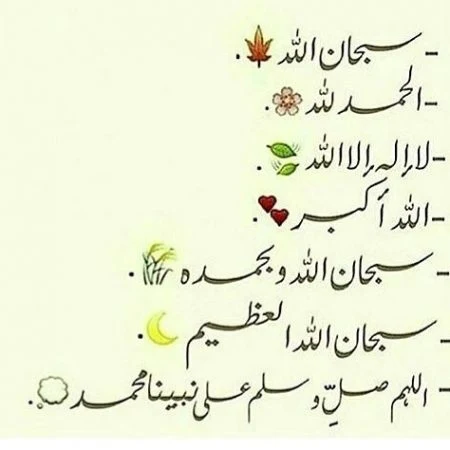 - سبحان الله 🍁.
- الحمد لله 🌸.
- لا إله إلا الله 🍃.
- الله أكبر 💕.
- سبحان الله وبحمده 🌾.
- سبحان الله العظيم 🌙.
- اللهم صلِّ وسلم على نبينا محمد 💭.